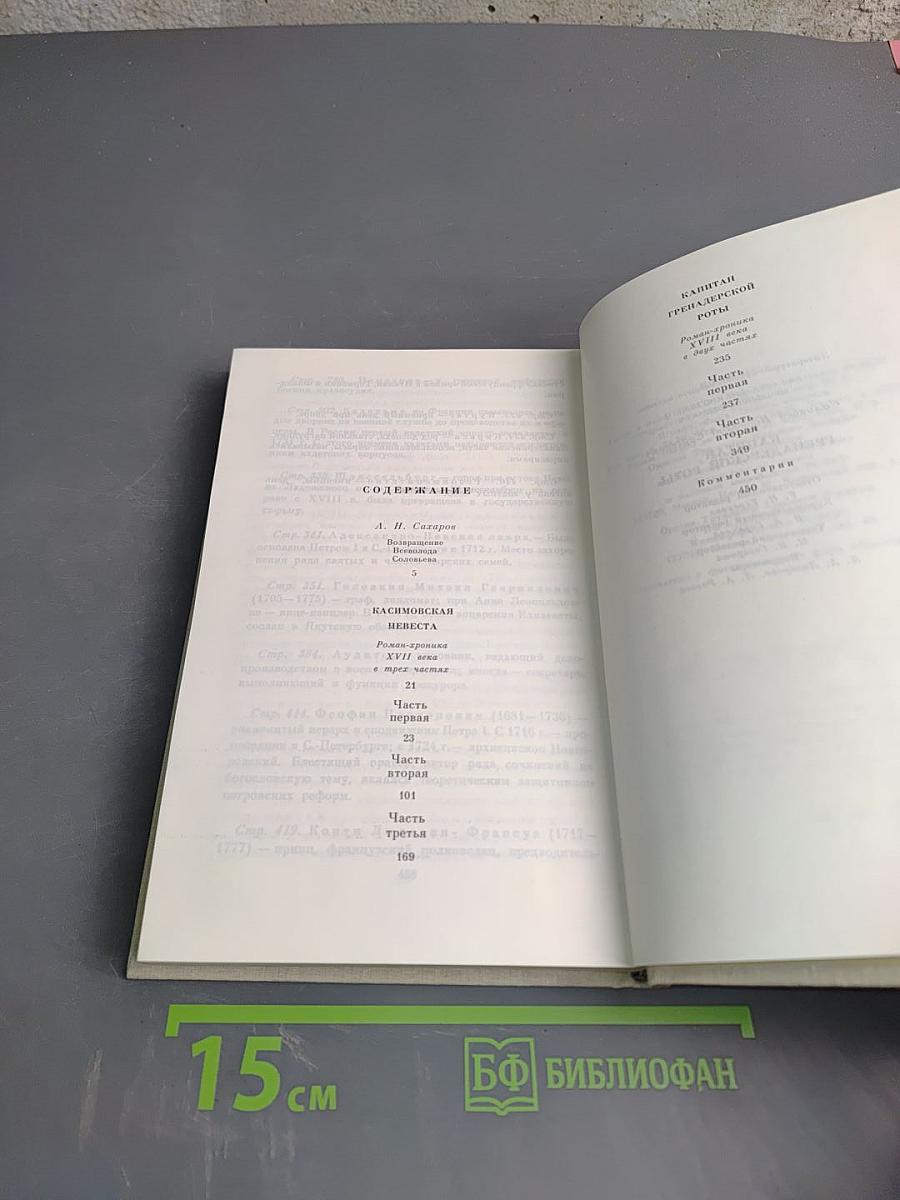 СОДЕРЖАНИЕ
А. Н. Сахаров
Возвращение
Всеволода
Соловьева
5
КАСИМОВСКАЯ
НЕВЕСТА
Роман-хроника
XVII века
в трех частях
21
Часть
первая
23
Часть
вторая
101
Часть
третья
169
КАПИТАН
ГРЕНАДЕРСКОЙ
РОТЫ
Роман-хроника
XVIII века
в двух частях
235
Часть
первая
237
Часть
вторая
349
Комментарии
450
15 см
БФ БИБЛИОФАН